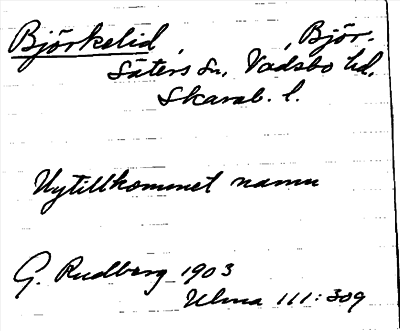 Björkelid, Björ.
Säters sn, Vadsbo hd,
Skarab. l.
Nytillkommet namn
G. Rudberg 1903
Ulma 111:309